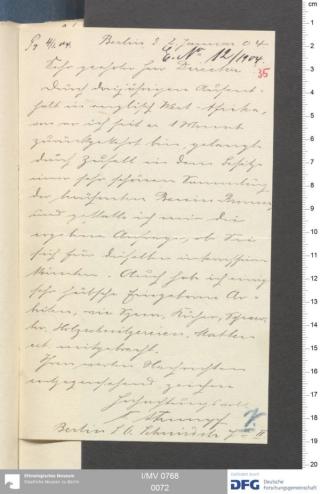 Berlin d. 2. Januar 04
Pr 4/1.04.
E. No 12/1904.
35
Sehr geehrter Herr Director
Durch dreijährigen Aufent-
halt in englisch West-Afrika,
von wo ich seit 1 Monat
zurückgekehrt bin, gelangte
durch Zufall in den Besitz
einer sehr schönen Sammlung
der berühmten Benin Bronzen
und gestatte ich mir die
ergebene Anfrage, ob Sie
sich für dieselben interessieren
könnten. Auch habe ich einige
sehr hübsche Eingeborene Ar-
beiten, wie Speere, Köcher,
Holzschnitzereien, Matten
etc mitgebracht.
Ihren werten Nachrichten
entgegensehend zeichne
Hochachtungsvoll
Berlin S. O.
cm
1
2
3
4
5
6
7
8
9
10
11
12
13
14
15
16
17
18
19
20
Ethnologisches Museum
Staatliche Museen zu Berlin
I/MV 0768
0072
DFG
Deutsche
Forschungsgemeinschaft